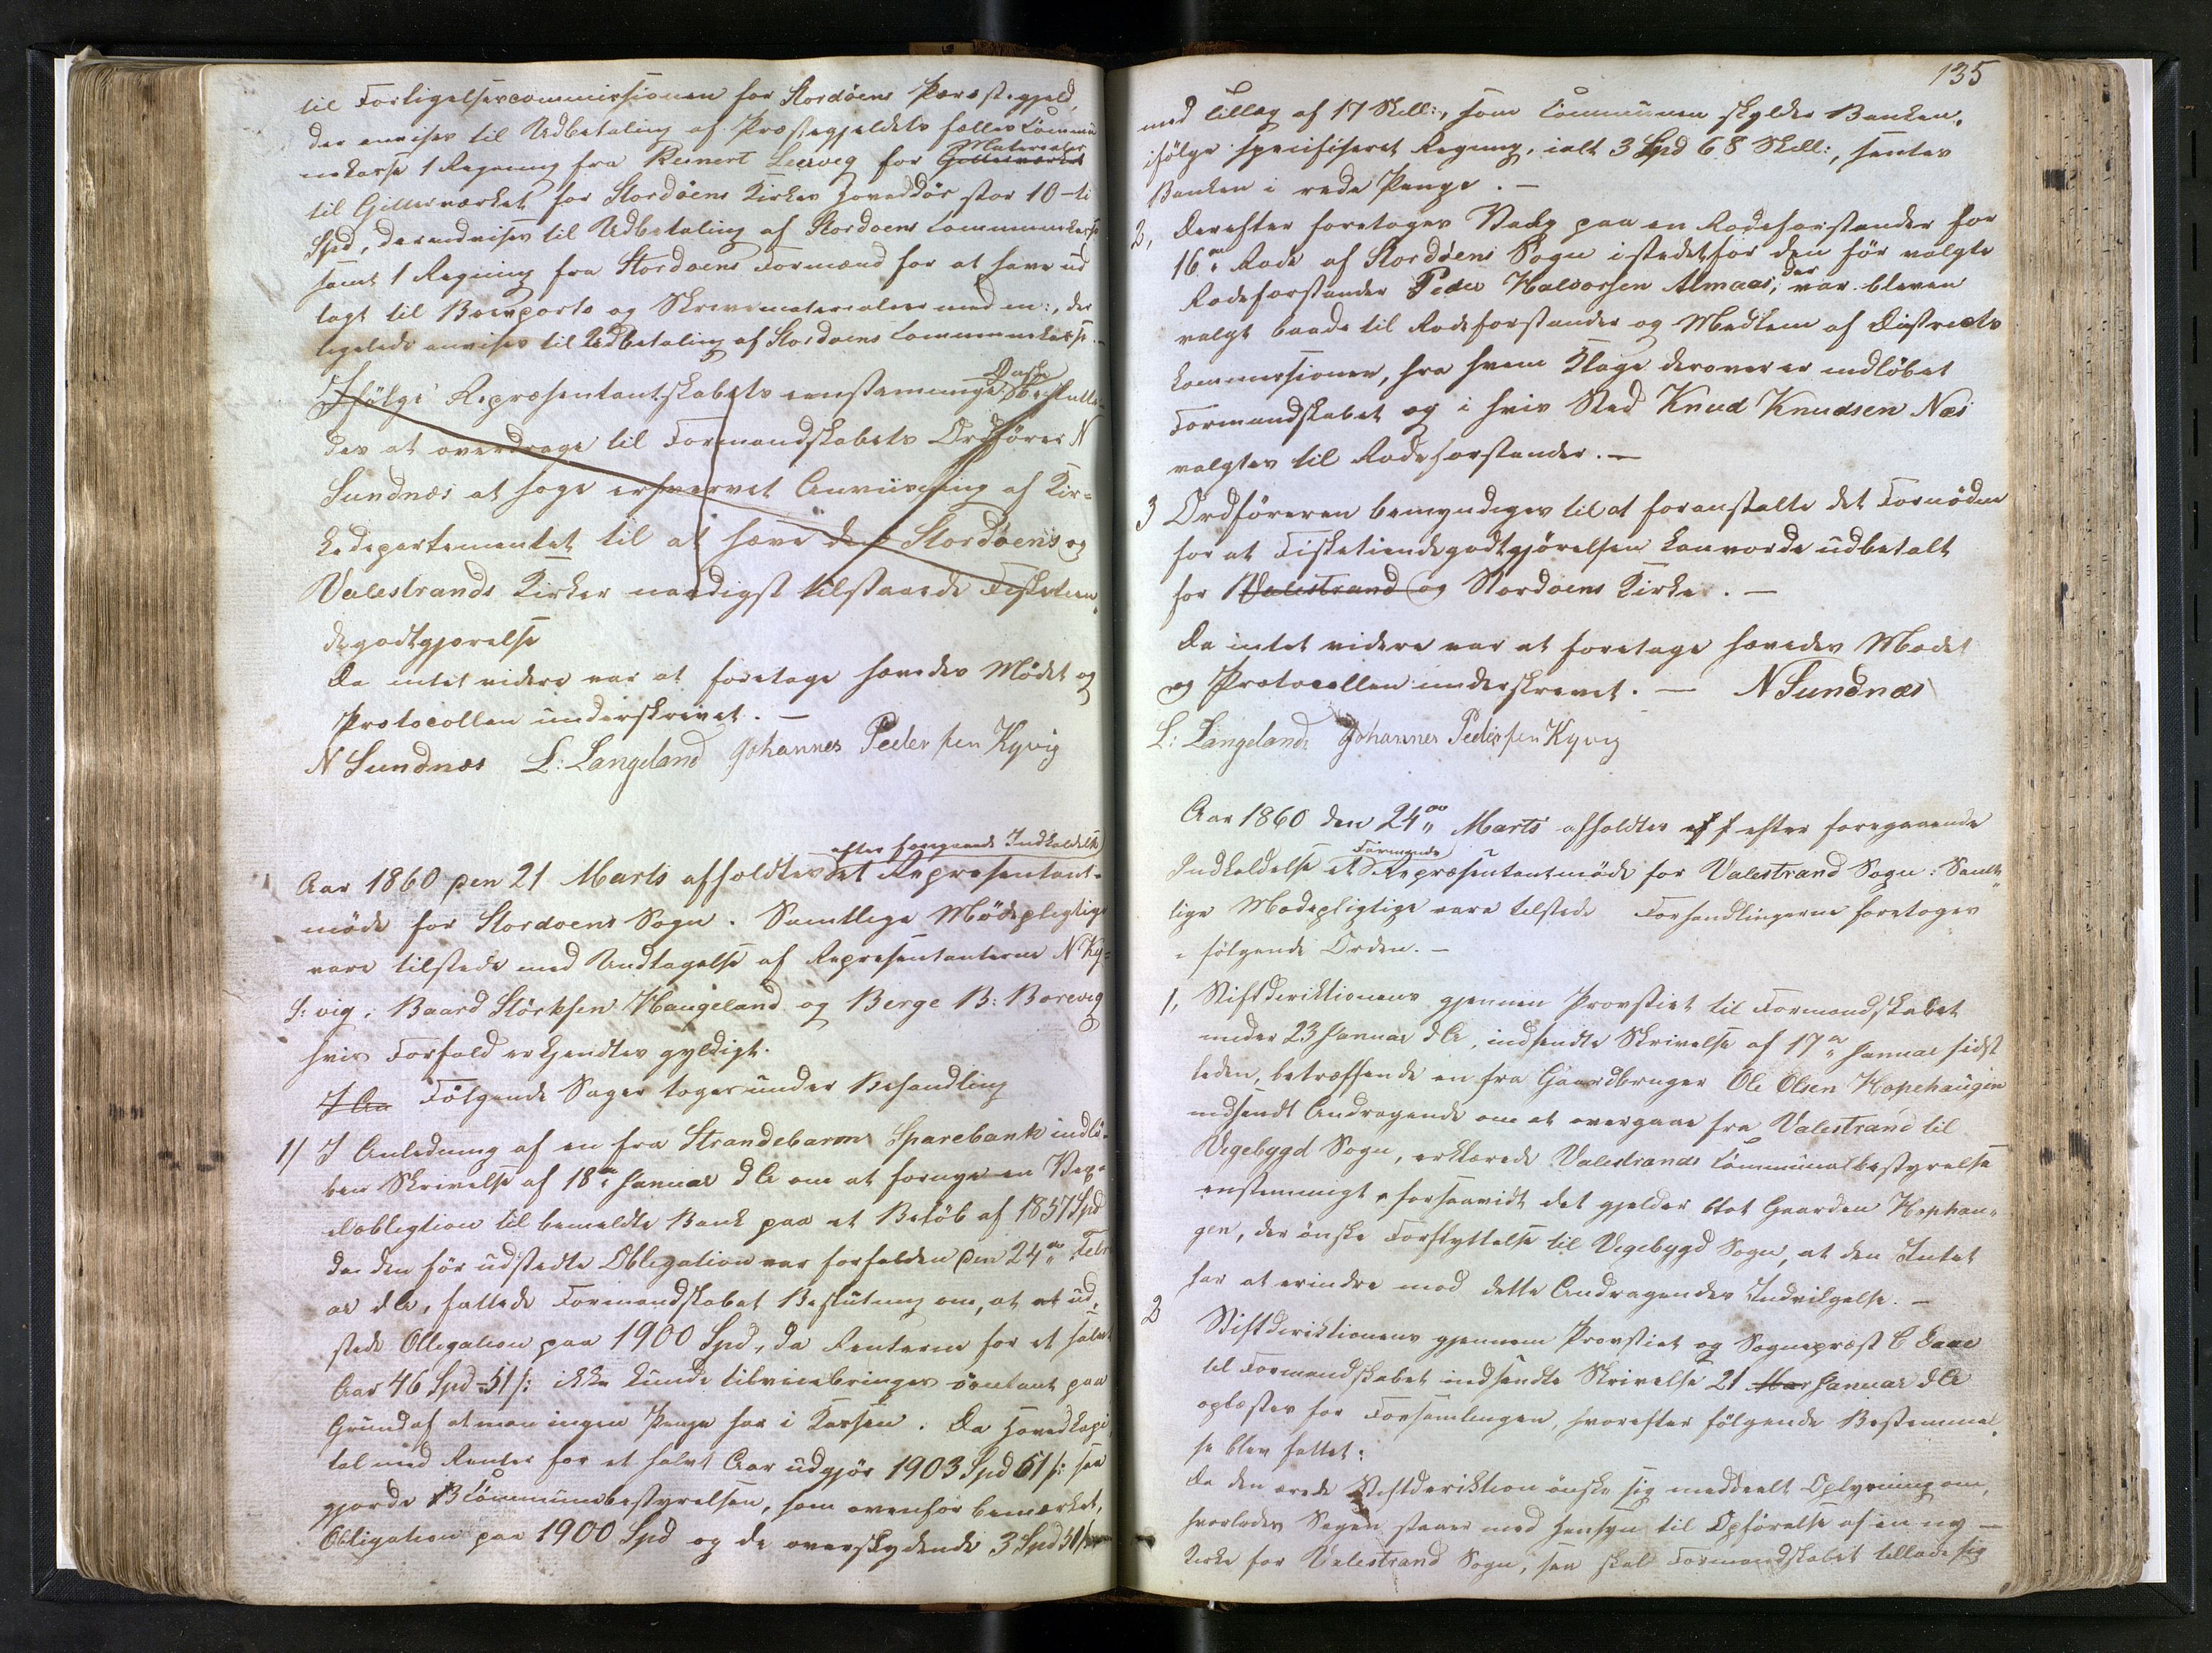 til Forligelsescommissionen for Stordöens Præstegjeld,
der anvises til Udbetaling af Præstegjeldets fælles Commu
nekasse 1 Regning fra Reinert Leerveg for Gitterværket Materealer
til Gitterværket for Stordöens Kirkes Hoveddör stor 10-ti
Spd, der andvises til Udbetaling af Stordoens Communekasse
samt 1 Regning fra Stordoens Formænd for at have ud
lagt til Brevporto og Skrivematerialier med m:, der
legeledes anvises til Udbetaling af Stordoens Communekasse.-
Ifölge Repræsentantskabets eenstemmige Önske besluttes
des at overdrage til Formandskabets Ordförer N
Sundnæs at söge erhvervet Anviisning af Kir=
kedepartementet til at hæve den Stordöens og
Valestrands Kirker naadigst tilstaaede Fisketien
degodtgjorelse
Da intet videre var at foretage hævedes Mödet og
Protocollen underskrevet. -
N Sundnæs L: Langeland Johannes Pedersen Kyvig
efter foregaaende Indkaldelse
Aar 1860 den 21 Marts afholdtes et Repræsentant-
möde for Stordoens Sogn. Samtlege Mödepligtige
vare tilstede med Undtagelse af Repræsentanterne N Ky=
S: vig, Baard Störksen Haugeland og Berge B: Borevig
hvis Forfald erkjendtes gyldigt.
I An Fölgende Sager toges under Behandling
1) I Anledning af en fra Strandebarms Sparebank indlö-
ben Skrivelse af 18de Januar d A om at fornye en Vexe
elobligtion til bemeldte Bank paa et Belöb af 1857 Spd
da den för udstedte Obligation var forfalden den 24de Febr
ar d A, fattede Formandskabet Beslutning om, at at ud,
stede Obligation paa 1900 Spd, da Renterne for et halvt
Aar 46 Spd-51 s: ikke kunde tilveiebringes contant paa
Grund af at man ingen Penge har i Kassen. Da Hovedkapi
tal med Renter for et halvt Aar udgjör 1903 Spd 51 s: saa
gjorde Communebestyrelsen, som ovenfor bemærket,
Obligation paa 1900 Spd og de overskydende 3 Spd 51 s
135
med Tillæg af 17 Skill:, som Communen skylder Banken,
ifölge specifiseret Regning, ialt 3 Spd 68 Skill:, sendes
Banken i rede Penge. -
2, Derefter foretoges Valg paa en Rodeforstander for
16de Rode af Stordöens Sogn istedetfor den för valgte
Rodeforstander Peder Halvorsen Almaas, der var bleven
valgt baade til Rodeforstander og Medlem af Districts
kommissionen, fra hvem Klage derover er indlöbet
Formandskabet og i hvis Sted Knud Knudsen Næs
valgtes til Rodeforstander. -
3 Ordföreren bemyndiges til at foranstalte det Fornödne
for at Fisketiendegodtgjörelsen kan vorde udbetalt
for Valestrand og Stordoens Kirke. -
Da intet videre var at foretage hævedes Modet
og Protocollen underskrevet. - N Sundnæs
L: Langeland Johannes Pedersen Kyvig
Aar 1860 den 24de Marts afholdtes ef f efter foregaaende
Indkaldelse et Formands Repræsentantmöde for Valestrand Sogn: Samt-
lige Modepligtige vare tilstede Forhandlingerne foretoges
i fölgende Orden. -
1, Stiftdirektionens gjennem Provstiet til Formandskabet
under 23 Januar d A, indsendte Skrivelse af 17de Januar sidst
leden, betræffende en fra Gaardbruger Ole Olsen Hopehaugen
indsendt Andragende om at overgaae fra Valestrand til
Vegebygd Sogn, erklærede Valestrands Communalbestyrelse
enstemmigt, forsaavidt det gjelder blot Gaarden Hophau-
gen, der önske Forflyttelse til Vegebygd Sogn, at den Intet
har at erindre mod dette Andragendes Indvilgelse. -
2 Stiftdirektionens gjennem Provstiet og Sognepræst C Daae
til Formandskabet indsendte Skrivelse 21 Mar Januar d A
oplæstes for Forsamlingen, hvorefter fölgende Bestemmel-
se blev fattet:
Da den ærede Stiftdirektion önske sig meddeelt Oplysning om,
hvorledes Sagen staaer med Hensyn til Opförelse af en ny -
Kirke for Valestrand Sogn, saa skal Formandskabet tillade sig